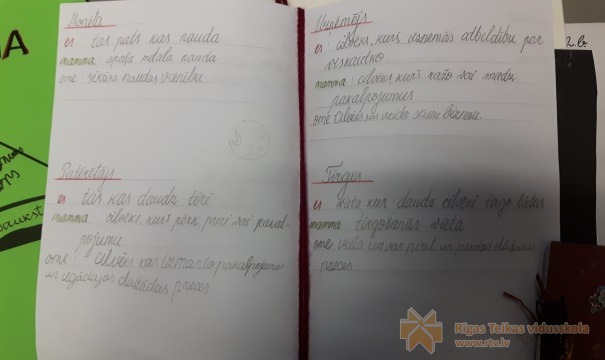 Monēta
es tas pats kas nauda
mamma: apaļa mētāla nauda
ome: sīkāka naudas vienība
Patērētājs
es tas kas daudz tērē
mamma: cilvēks, kurš pērk preci vai pakal-
pojumu
ome: cilvēks kas izmanto pakalpojumus
un iegādājas dažādas preces
Uzņēmējs
es: cilvēks, kurš uzņemās atbildību par
viskautko
mamma: cilvēks kurš ražo vai sniedz
pakalpojumus
ome cilvēks kas veido savu biznesu
Tirgus
es vieta kur daudz cilvēki tirgo lietas
mamma tirgošanās vieta
ome vieta kur var pirkt un pārdot dažādas
preces
Rīgas Teikas vidusskola
www.rtv.lv